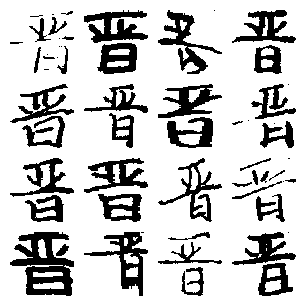 晋晋晋晋
晋晋晋晋
晋晋晋晋
晋晋晋晋